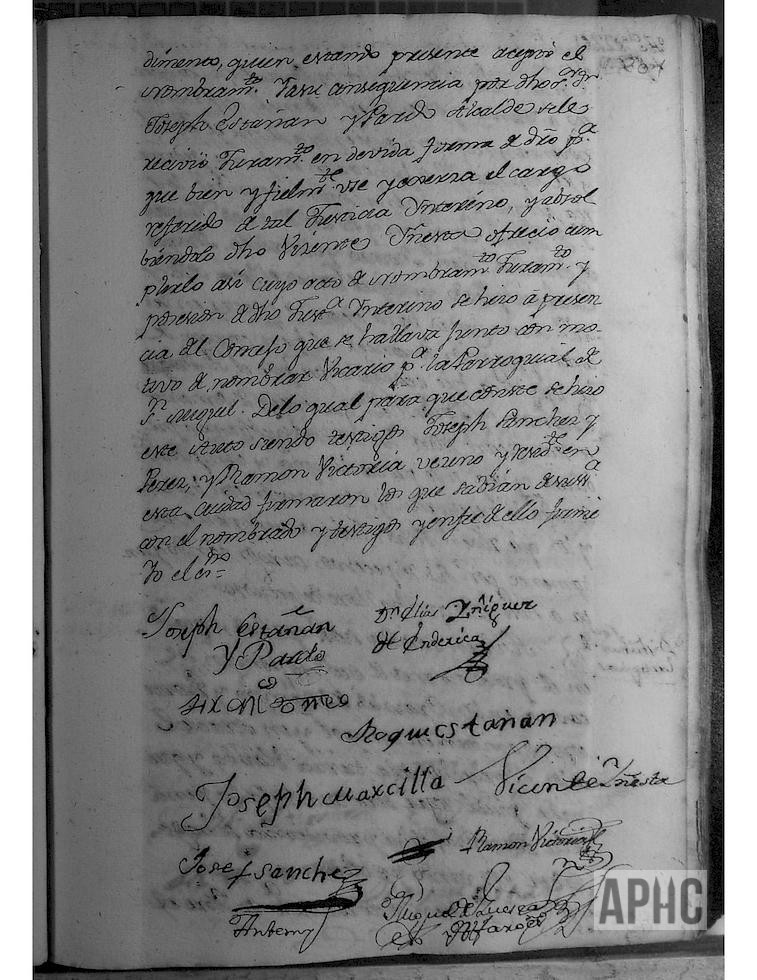 dimento, quien estando presente aceptó el
Nombram.to Y en su consequencia por dho S.r Dn.
Joseph Estañan y Pardo Alcalde se le
recivió Juram.to en devida forma de dro p.a
que bien y fielm.te use y exerza el cargo
referido de tal Justicia Ynterino, y absol
biendolo dho Vizente Yñesta ofreció cum
plirlo así cuyo acto de Nombram.to Juram.to y
posesion de dho Just.a Ynterino se hizo á presen
cia del Concejo que se hallava junto con mo
tivo de nombrar Vicario p.a la Parroquial de
S.n Miguel. De lo qual para que conste se hizo
este Auto siendo testigos Joseph Sanchez y
Perez, y Ramon Victoria vecino y resid.te en
esta Ciudad firmaron los que sabian
con el nombrado y testigos y en fee de ello firmé
Yo el es.no=
Joseph Estañan
y Pardo
D.n Elias Yñiguez
de Enderica
Roque estañan
Joseph Marcilla
Vicente Yñesta
Ramon Victoria
Josef sanchez
Antemy
Miguel de